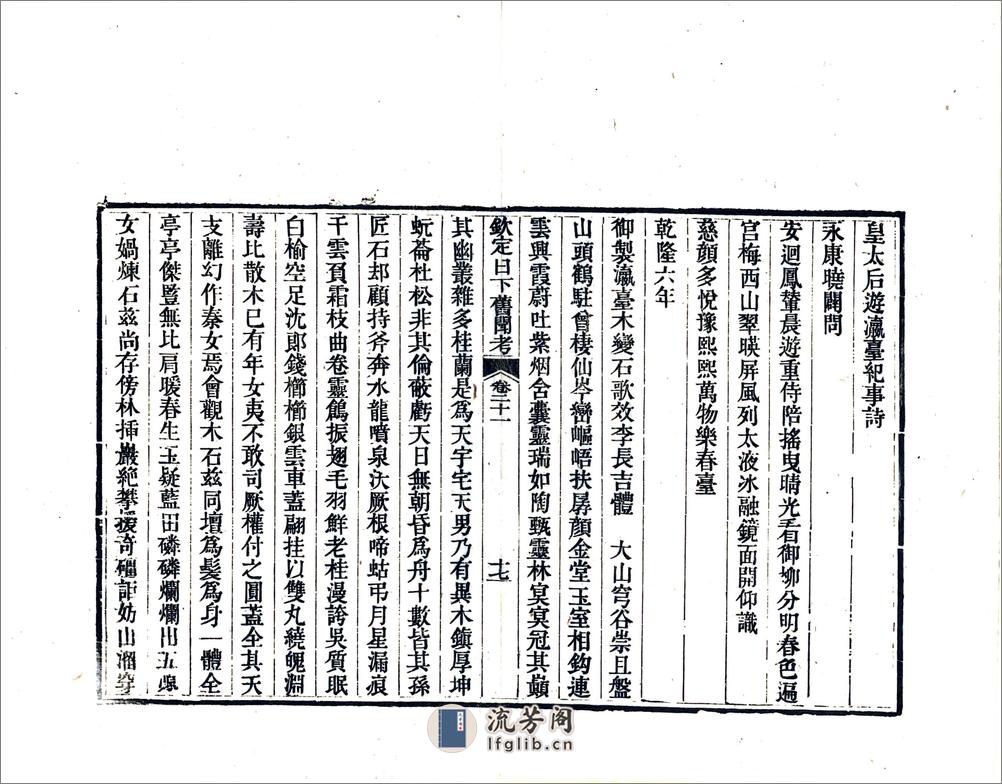 皇太后遊瀛臺紀事詩
永康曉闢問
安迴鳳輦晨遊重侍陪搖曳晴光看御柳分明春色遍
宫梅西山翠暎屏風列太液冰融鏡面開仰識
慈顏多悅豫熙熙萬物樂春臺
乾隆六年
御製瀛臺木變石歌效李長吉體 大山穹谷崇且盤
山頭鶴駐曾棲仙岑巒嶇峿扶孱顏金堂玉室相鈎連
雲興霞蔚吐紫烟含囊靈瑞如陶甄靈林冥冥冠其巔
欽定日下舊聞考 卷二十一 十七
其幽叢雜多桂蘭是爲天宇宅天男乃有異木鎮厚坤
蚖菕杜松非其倫蔽虧天日無朝昏爲舟十數皆其孫
匠石却顧持斧奔水龍噴泉汏厥根啼蛄弔月星漏痕
干雲頁霜枝曲卷靈鶴振翅毛羽鮮老桂漫誇吳質眠
白榆空足沈郞錢櫛櫛銀雲車蓋翩挂以雙丸繞魄淵
壽比散木已有年女夷不敢司厥權付之圓蓋全其天
支離幻作秦女焉會觀木石兹同壇爲髮爲身一體全
亭亭傑豎無比肩暖春生玉疑藍田磷磷爛爛出五
女媧煉石兹尚存傍林揷巖絶攀援奇礓詎妨山溜穿
流芳阁
lfglib.cn